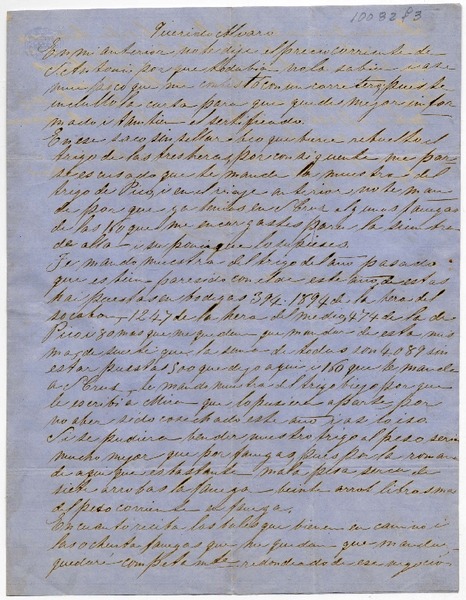 1003283
Querido Alvaro
En mi anterior no te dije el precio corriente de
S. Antonio por que todabia no la sabia i aso
mui fasco que me contestó con un carretero pues te
inclullo la carta para que quedes mejor infor
mado i tambien el sertificado.
En ese saco sin sellar beo que biene rebuelto el
trigo de las tres heras, por consiguiente me par
ese escusado que te mande la muestra del
trigo de Pico, i en el biaje anterior no te man
de por que ya tenias en S. Cruz algunas fanegas
de las 180 que me encargastes para la siembra
de alla i suponia que lo supieses.
Te mando muestra del trigo del año pasado
que es bien paresido con el de este año de estas
hai puestas en bodegas 394. 1894 de la hera del
socabon, 1247 de la hera del medio, 474 de la de
Pico, i 80 mas que me quedan que mandar de esta mis
ma, de suerte que la suma de todas son 4089 sin
estar puestas 500 que dejo aqui i 180 que te mande
a S. Cruz, te mando muestra del trigo biejo por que
le escribi a Mier que lo pusiera aparte por
no aber sido cosechado este año i asi lo iso.
Si se pudiera bender nuestro trigo al peso seria
mucho mejor que por fanegas pues por la romana
de aqui que es bastante mala pesa serca de
siete arrobas la fanega beinte arrob libras mas
del peso corriente en fanega.
En cuanto resiba las balijas que bienen en camino i
las ochenta fanegas que me quedan que mandar
quedare completamte redondeado de ese negocio